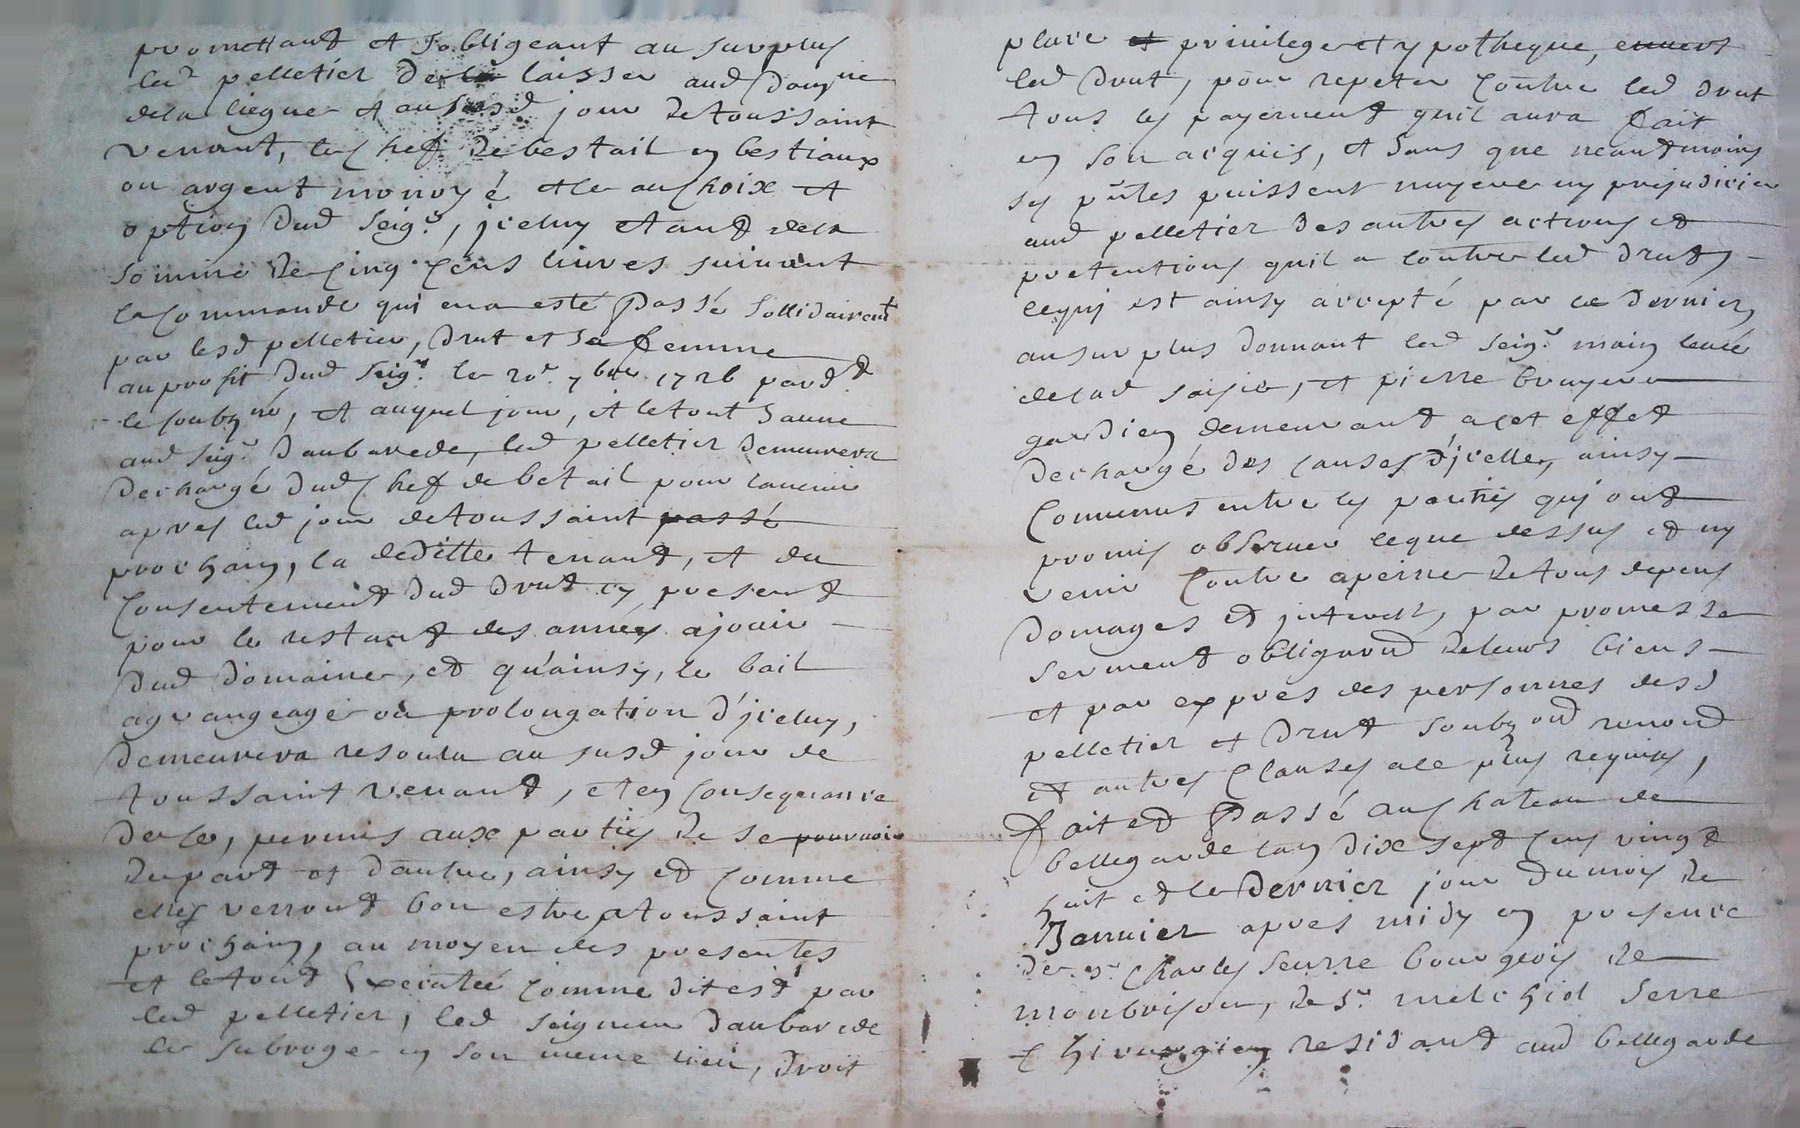 promettant et sobligeant au surplus
led pelletier de le laisser aud domne
dela liegue et au susd jour de toussaint
venant, les chef de bestail en bestiaux
ou argent monoyé et ce au choix et
option dud seigr, jceluy etant dela
somme de cinq cens livres suivant
la commande qui en a esté passé sollidairemt
par lesd pelletier, drut et sa femme
au profit dud seigr le 20e 7bre 1726 pard
le soubzné, et auquel jour, et le tout dauné
aud seigr daubarede, led pelletier demeurera
dechargé dud chef de betail pour lavenir
apres led jour de toussaint passé
prochain, la deditte tenant, et du
consentement dud drut cy present
pour le restant des années a jouir
dud domaine, et qu'ainsy, le bail
agrangeage ou prolongation d'jceluy,
demeurera resoulu au susd jour de
toussaint venant, et en consequance
de ce, permis aux parties de se pourvoir
de part et d'autre, ainsy et comme
elles verront bon estre a toussaint
prochain, au moyen des presentes
et le tout executée comme dit est par
led pelletier, led seigneur daubarede
le subroge en son meme lieu, droit
place et privilege et ypotheque, envers
led drut, pour repeter contre led drut
tous les payement quil aura fait
en son acquis, et sans que neantmoins
les pntes puissent nuyre ny prejudicier
aud pelletier des autres actions et
pretentions quil a contre led drut,
ce qui est ainsy accepté par ce dernier,
au surplus donnant led seigr main levée
de lad saisie, et pierre bruyere
gardien demeurant a cet effet
dechargé des causes d'jcelle, ainsy
convenus entre les parties qui ont
promis observer ce que dessus et ny
venir contre a peine de tous depens
domages et jnterest, par promesse
serment obligaond de leurs biens
et par expres des personnes desd
pelletier et drut soubzond renond
et autres clauses a ce plus requises,
fait et passé au chateau de
bellegarde lan dix sept cens vingt
huit et le dernier jour du mois de
Janvier apres midy en presence
de sr charles seurre bourgeois de
monbrison, de sr melchiol serre
chirurgien residant aud bellegarde